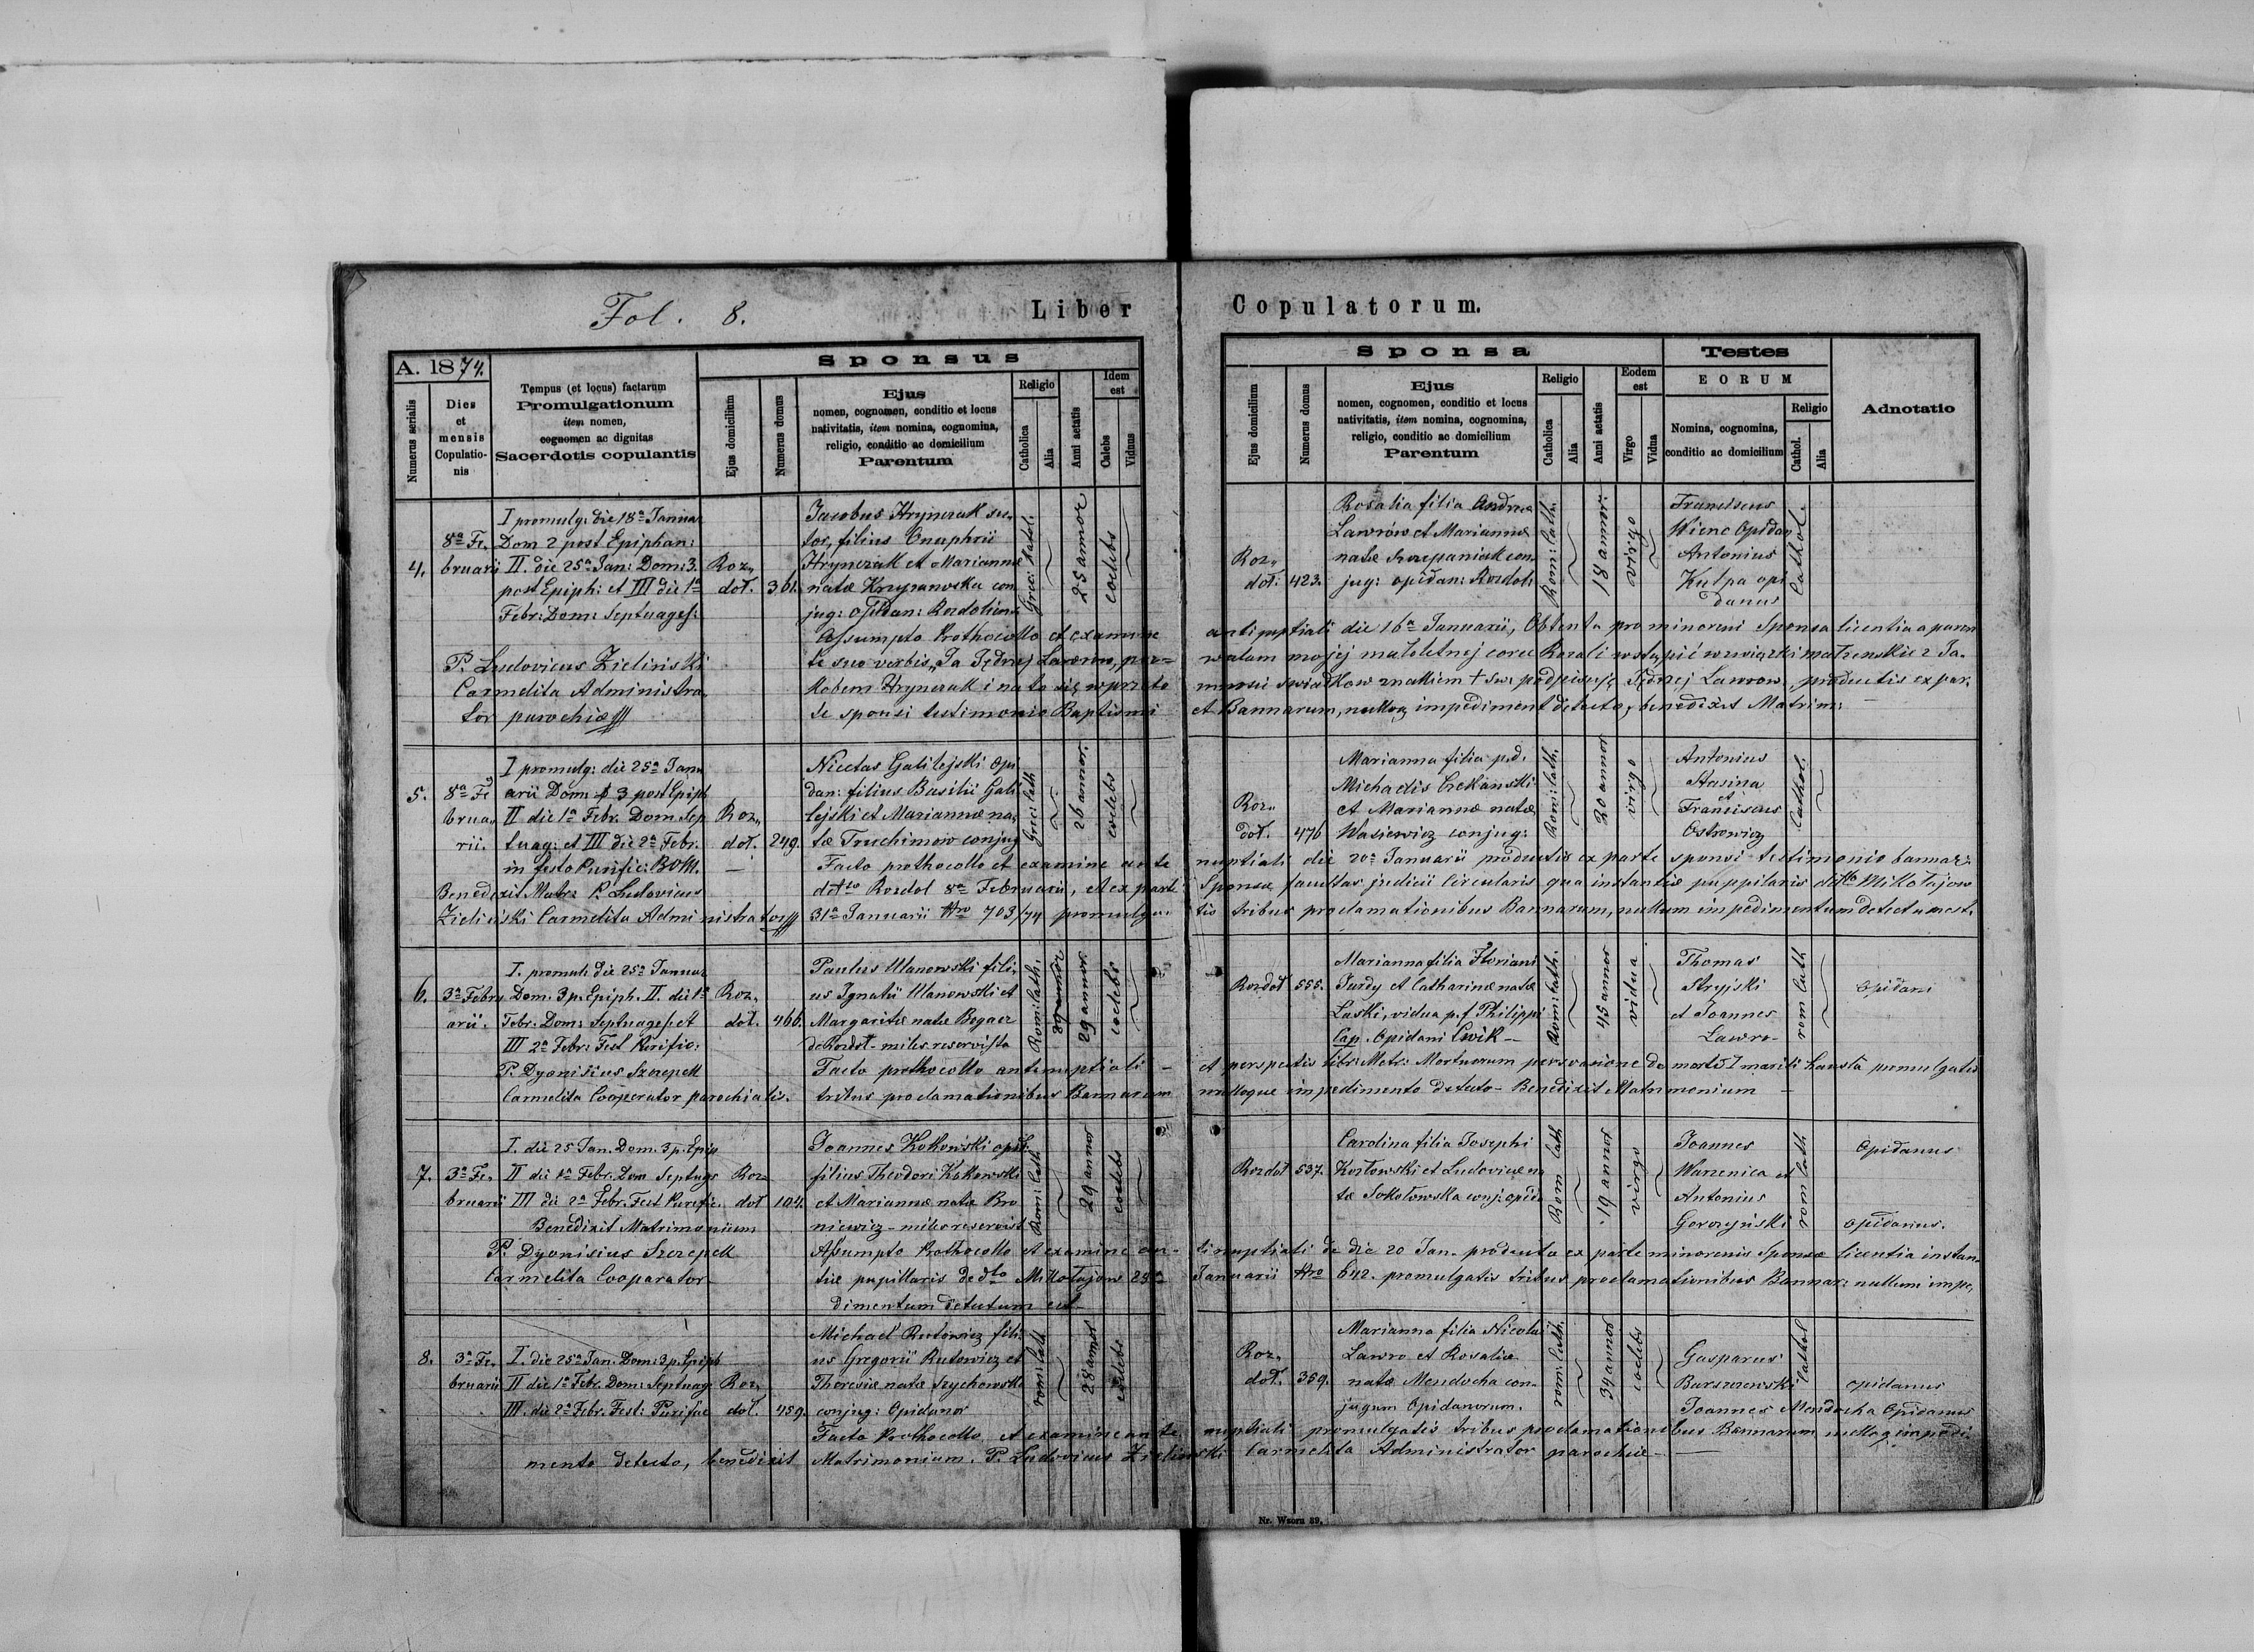 Fol. 8.
Liber Copulatorum.
A. 1874.
Numerus serialis
Dies et mensis Copulationis
Tempus (et locus) factarum
Promulgationum
item nomen,
cognomen ac dignitas
Sacerdotis copulantis
Sponsus
Ejus domicilium
Numerus domus
Ejus
nomen, cognomen, conditio et locus
nativitatis, item nomina, cognomina,
religio, conditio ac domicilium
Parentum
Religio
Catholica
Alia
Anni aetatis
Idem est
Calebs
Viduus
Sponsa
Ejus domicilium
Numerus domus
Ejus
nomen, cognomen, conditio et locus
nativitatis, item nomina, cognomina,
religio, conditio ac domicilium
Parentum
Religio
Catholica
Alia
Anni aetatis
Eodem est
Virgo
Vidua
Testes
EORUM
Nomina, cognomina,
conditio ac domicilium
Religio
Cathol.
Alia
Adnotatio
4.
8ª Fe,
bruarii
I promulg: die 18ª Januar
Dom 2 post Epiphan:
II. die 25ª Jan: Dom: 3.
post Epiph: et III die 1ª
Febr: Dom: Septuages:
P. Ludovicus Zielinski
Carmelita Administra,
tor parochiæ
Roz,,
doł.
361.
Jacobus Hrynczak su,
tor, filius Onuphrii
Hrynczak et Mariannæ
natæ Krzyżanowska con
jug: opidan: Rozdolien:
Græci: Kathol.
25 annor
coelebs
Roz,,
doł.
423.
Rosalia filia Andreæ
Lawrów et Mariannæ
natæ Szczepaniak con,
jug: opidan: Rozdol:
Rom: cath:
18 annor:
virgo
Franciscus
Wienc Opidan
Antonius
Kulpa opi
danus
Cathol.
Assumpto Prothocollo et examine antinuptiali die 16ª Januarii, Obtenta pro minoreni Sponsa licentia a paren
te suo verbis „Ja Jędrzej Lawrow, poz= walam mojej małoletnej corce Rozali wstąpić w związki małżenskie z Ja.
kobem Hrynczak i na to się w przyto mności swiadkow znakiem + sw: podpisuję Jędrzej Lawrow, productis ex par,
te sponsi testimonio Baptismi et Bannarum, nulloq impediment detecto, benedixit Matrim:
5.
8ª Fe
brua,
rii.
I promulg: die 25ª Janu
arii Dom: 3 post Epiph
II die 1ª Febr. Dom. Sep
tuag: et III die 2ª Febr.
in festo Purific: B.V.M. —
Benedixit Matr: P. Ludovicus
Zielinski Carmelita Administrator
Roz,,
doł.
249.
Nicetas Galilejski Opi
dan: filius Basilii Gali
lejski et Mariannæ na,
tæ Truchimow conjug
Græci: cath
26 annor.
coelebs
Roz,,
doł.
476
Marianna filia p.d.
Michaelis Czekanski
et Mariannæ natæ
Wasiewicz conjug:
Rom: cath.
20 annor
virgo
Antonius
Stasina
et
Franciscus
Ostrowicz
Cathol.
Facto prothocollo et examine ante nuptiali die 20ª Januarii productis ex parte sponsi testimonio bannar:
ddtto Rozdol 8ª Februarii, et ex parte Sponsæ facultas judicii Circularis qua instantiæ puppilaris ddtto Mikołajow
31ª Januarii Nro 703/74 promulga: tis tribus proclamationibus Bannarum, nullum impedimentum detectum est.
6.
3ª Febru
arii.
I. promul: die 25ª Januar
Dom. 3 p. Epiph. II. die 1ª
Febr. Dom: Septuages et
III 2ª Febr: Fest Purific:
P. Dyonisius Szczepek
Carmelita Cooperator parochialis.
Roz,
doł.
466.
Paulus Ulanowski fili,
us Ignatii Ulanowski et
Margaritæ natæ Bogacz
de Rozdoł – miles reservista
Rom: cath.
29 annor
coelebs
Rozdoł
555.
Marianna filia Floriani
Jurdy et Catharinæ natæ
Laski, vidua p.f Philippi
Cap. Opidani Ćwik —
Rom: cath:
45 annor
vidua
Thomas
Stryjski
et Joannes
Lawro
rom cath
opidani
Facto prothocollo antenuptiali – et perspectis libr: Metr: Mortuorum persvasione de morte I mariti hausta promulgatis
tribus proclamationibus Bannarum nulloque impedimento detecto – Benedixit Matrimonium –
7.
3ª Fe,
bruarii
I. die 25 Jan. Dom. 3 p. Epip
II die 1ª Febr. Dom Septuag
III die 2ª Febr. Fest Purific.
Benedixit Matrimonium
P. Dyonisius Szczepek
Carmelita Cooparator
Roz
doł
104.
Joannes Kokowski opid
filius Theodori Kokowski
et Mariannæ natæ Bro
niewicz – miles reservist
Rom: Cath
29 annor
coelebs
Rozdoł
537.
Carolina filia Josephi
Kozłowski et Ludovicæ na
tæ Sokołowska conj: opida
Rom cath
19 annor
virgo
Joannes
Warzenica et
Antonius
Gorczyński
rom cath
Opidanus
opidanus.
Assumpto Prothocollo et examine an- tinuptiali de die 20 Jan. producta ex parte minorenis Sponsæ licentia instan,
tiæ pupillaris de dto Mikołajow 28ª Januarii Nro 642. promulgatis tribus proclamationibus Bannar: nullum impe,
dimentum detectum est —
8.
3ª Fe,
bruarii
I. die 25ª Jan. Dom: 3 p. Epiph
II die 1ª Febr. Dom: Septuag
III. die 2ª Febr. Fest: Purifac
Roz,
doł.
459.
Michael Rutowicz fili
us Gregorii Rutowicz et
Theresiæ natæ Szychowski
conjug: Opidanor
rom: cath
28 annor
coelebs
Roz,,
doł.
359.
Marianna filia Nicolai
Lawro et Rosaliæ
natæ Mendocha con,
jugum Opidanorum.
rom: cath.
34 annor
coelebs
Gasparus
Barszczewski
Joannes Mendocha Opidanus
Cathol
opidanus
Facto Prothocollo et examine ante nuptiali promulgatis tribus proclamationibus Bannarum nulloq impedi
mento detecto, benedixit Matrimonium. P. Ludovicus Zielinski Carmelita Administrator parochiæ —
Nr. Wzoru 39.